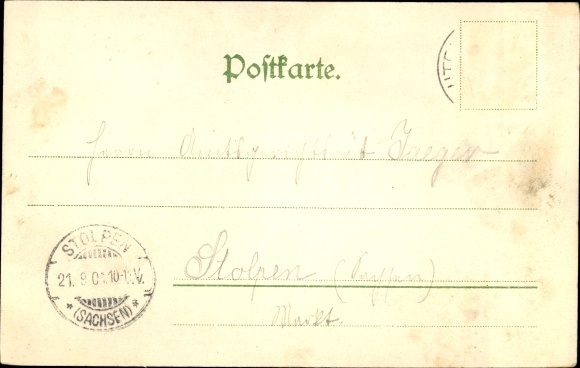 Postkarte.
Herrn Amtsgerichtsrat Jaeger
Stolpen (Sachsen)
Markt.
STOLPEN
21. 9 0 10-11.V.
* (SACHSEN) *